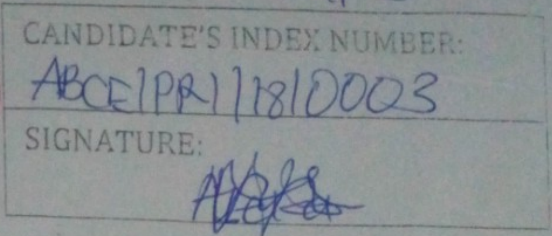 CANDIDATE'S INDEX NUMBER:
ABCE/PR1/18/0003
SIGNATURE: